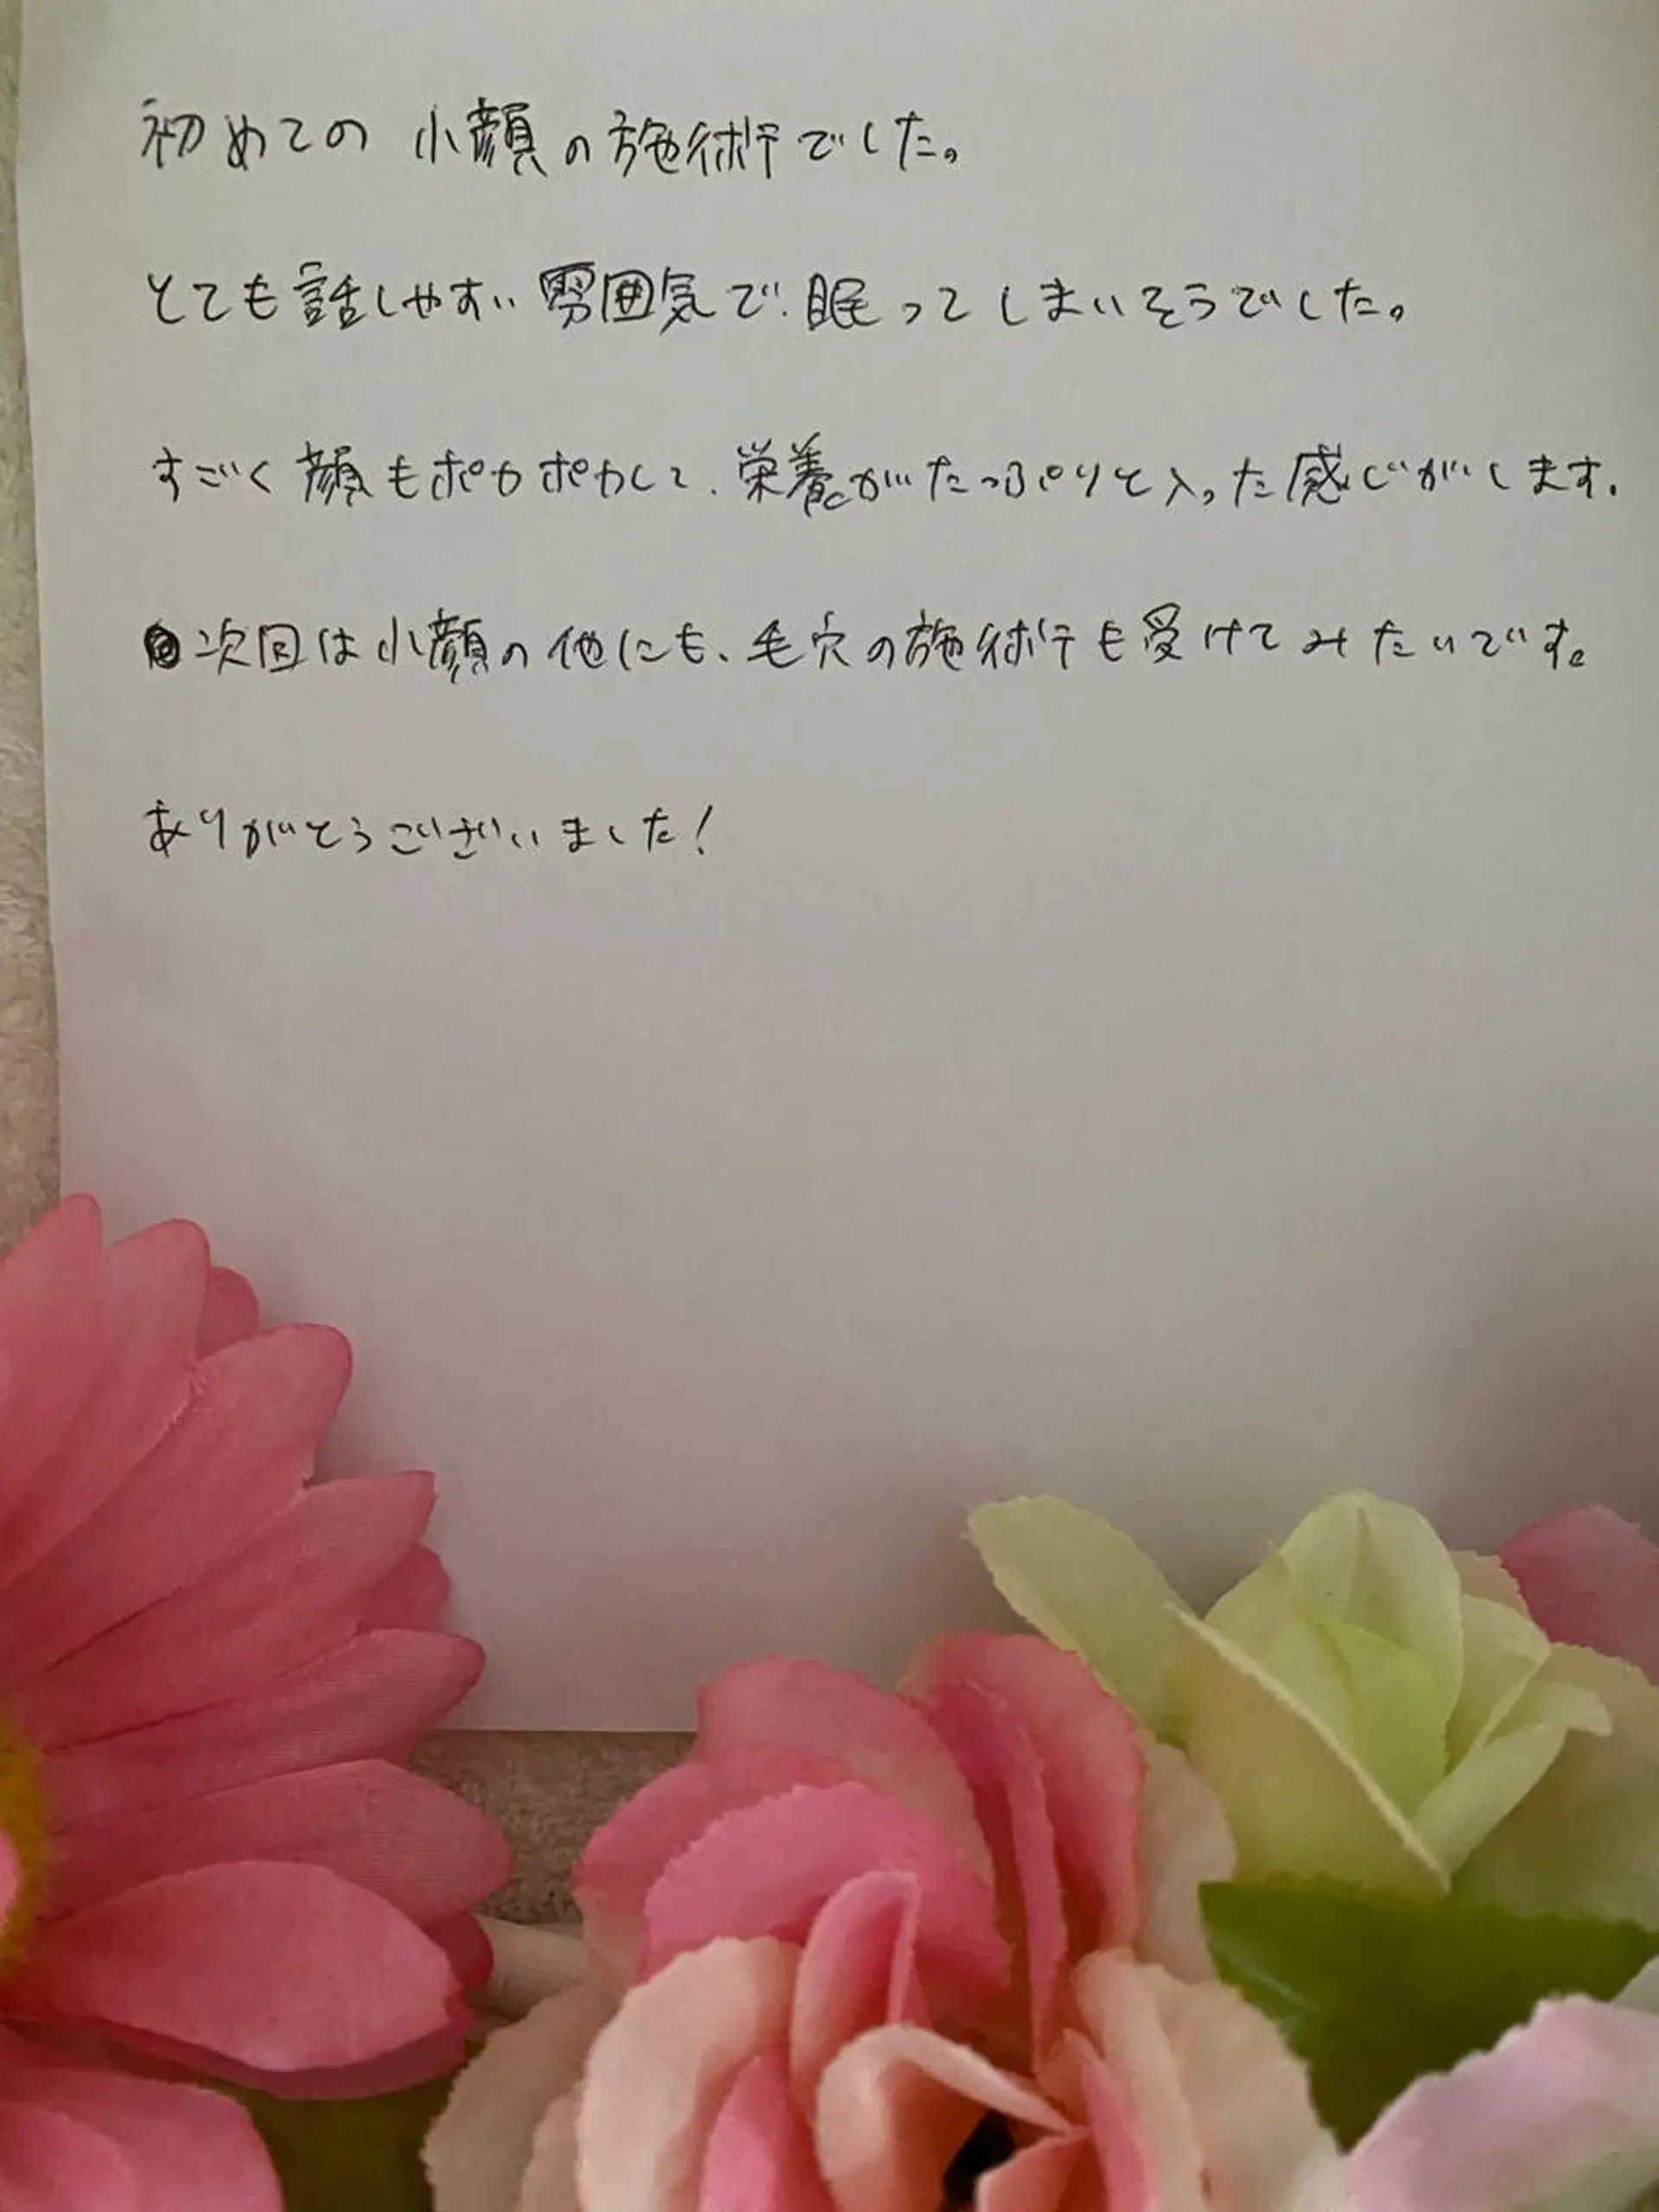 初めての小顔の施術でした。
とても話しやすい雰囲気で、眠ってしまいそうでした。
すごく顔もポカポカして、栄養がたっぷりと入った感じがします。
次回は小顔の他にも、毛穴の施術も受けてみたいです。
ありがとうございました!